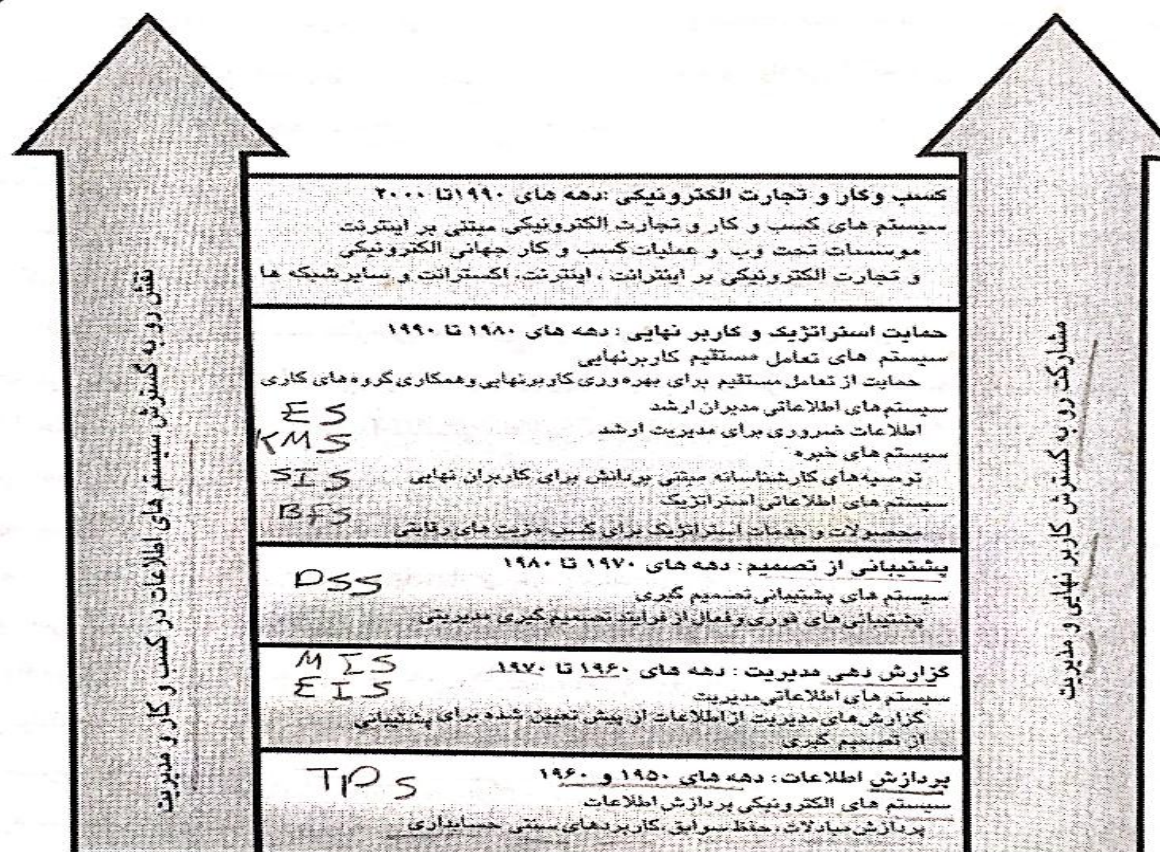 کسب وکار و تجارت الکترونیکی :دهه های ۱۹۹۰تا ۲۰۰۰
سیستم های کسب و کار و تجارت الکترونیکی مبتنی بر اینترنت
موسسات تحت وب و عملیات کسب و کار جهانی الکترونیکی
و تجارت الکترونیکی بر اینترانت ، اینترنت، اکسترانت و سایر شبکه ها
حمایت استراتژیک و کاربر نهایی : دهه های ۱۹۸۰ تا ۱۹۹۰
سیستم های تعامل مستقیم کاربرنهایی
حمایت از تعامل مستقیم برای بهره وری کاربرنهایی وهمکاری گروه های کاری
سیستم های اطلاعاتی مدیران ارشد
ES
اطلاعات ضروری برای مدیریت ارشد
KMS
سیستم های خبره
توصیه های کارشناسانه مبتنی بردانش برای کاربران نهایی
SIS
سیستم های اطلاعاتی استراتژیک
BFS
محصولات و خدمات استراتژیک برای کسب مزیت های رقابتی
پشتیبانی از تصمیم: دهه های ۱۹۷۰ تا ۱۹۸۰
DSS
سیستم های پشتیبانی تصمیم گیری
پشتیبانی های فوری وفعال از فرایند تصمیم گیری مدیریتی
گزارش دهی مدیریت : دهه های ۱۹۶۰ تا ۱۹۷۰
MIS
EIS
سیستم های اطلاعاتی مدیریت
گزارش های مدیریت از اطلاعات از پیش تعیین شده برای پشتیبانی
از تصمیم گیری
پردازش اطلاعات: دهه های ۱۹۵۰ و ۱۹۶۰
TPS
سیستم های الکترونیکی پردازش اطلاعات
پردازش مبادلات، حفظ سوابق، کاربردهای سنتی حسابداری
مشارکت رو به گسترش کاربر نهایی و مدیریت
نقش رو به گسترش سیستم های اطلاعات در کسب و کار و مدیریت